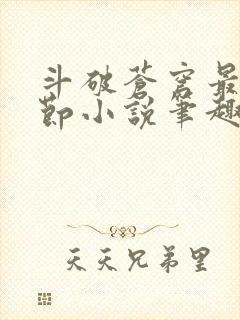 斗破苍穹最
节小说笔趣
天天兄弟里